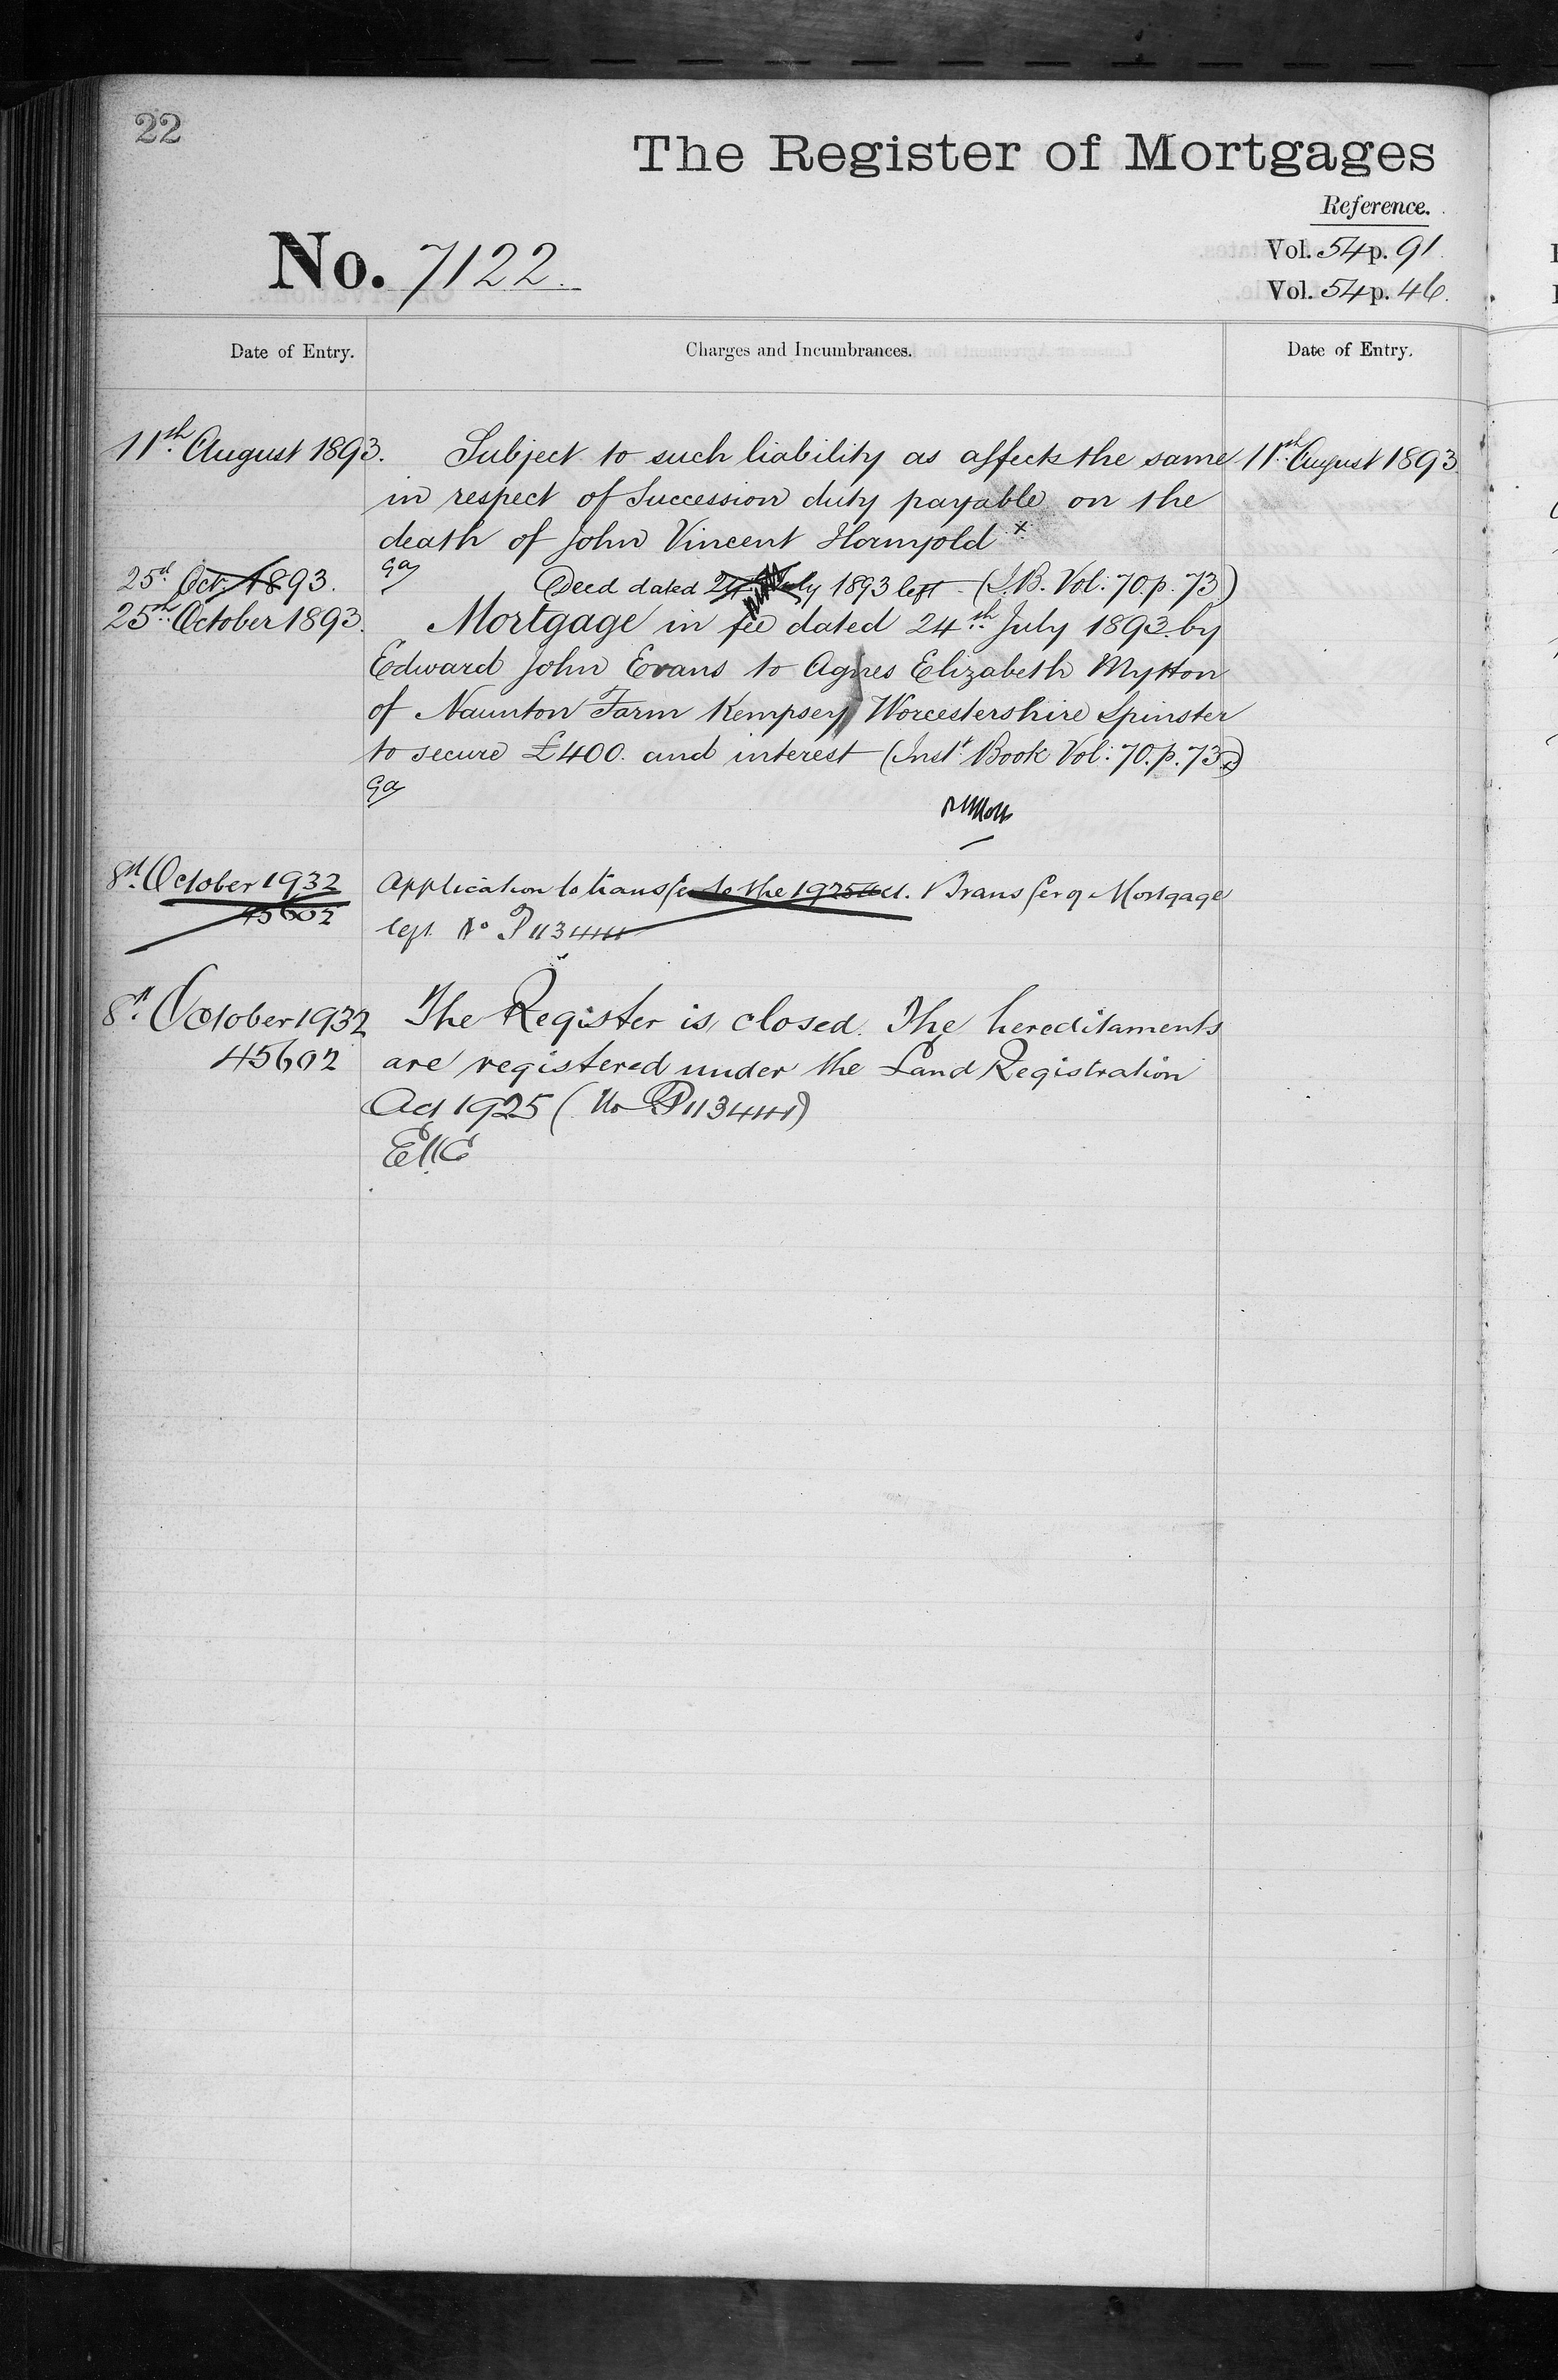 22
The Register of Mortgages
Reference.
No. 7122.
Vol. 54 p. 91.
Vol. 54 p. 46.
Date of Entry.
Charges and Incumbrances.
Date of Entry.
11th August 1893. Subject to such liability as affects the same 11th August 1893
in respect of Succession duty payable on the
death of John Vincent Hornyold x
25th Oct. 1893. Deed dated 24 July 1893 left (I.B. Vol: 70. p. 73)
25th October 1893. Mortgage in fee dated 24th July 1893 by
Edward John Evans to Agnes Elizabeth Mytton
of Naunton Farm Kempsey Worcestershire Spinster
to secure £400. and interest (Inst. Book Vol: 70. p. 73)
8th October 1932 Application to transfer to the 1925 Act. Transfer of Mortgage
45602 left No P113444
8th October 1932 The Register is closed. The hereditaments
45602 are registered under the Land Registration
Act 1925 (No P113444)